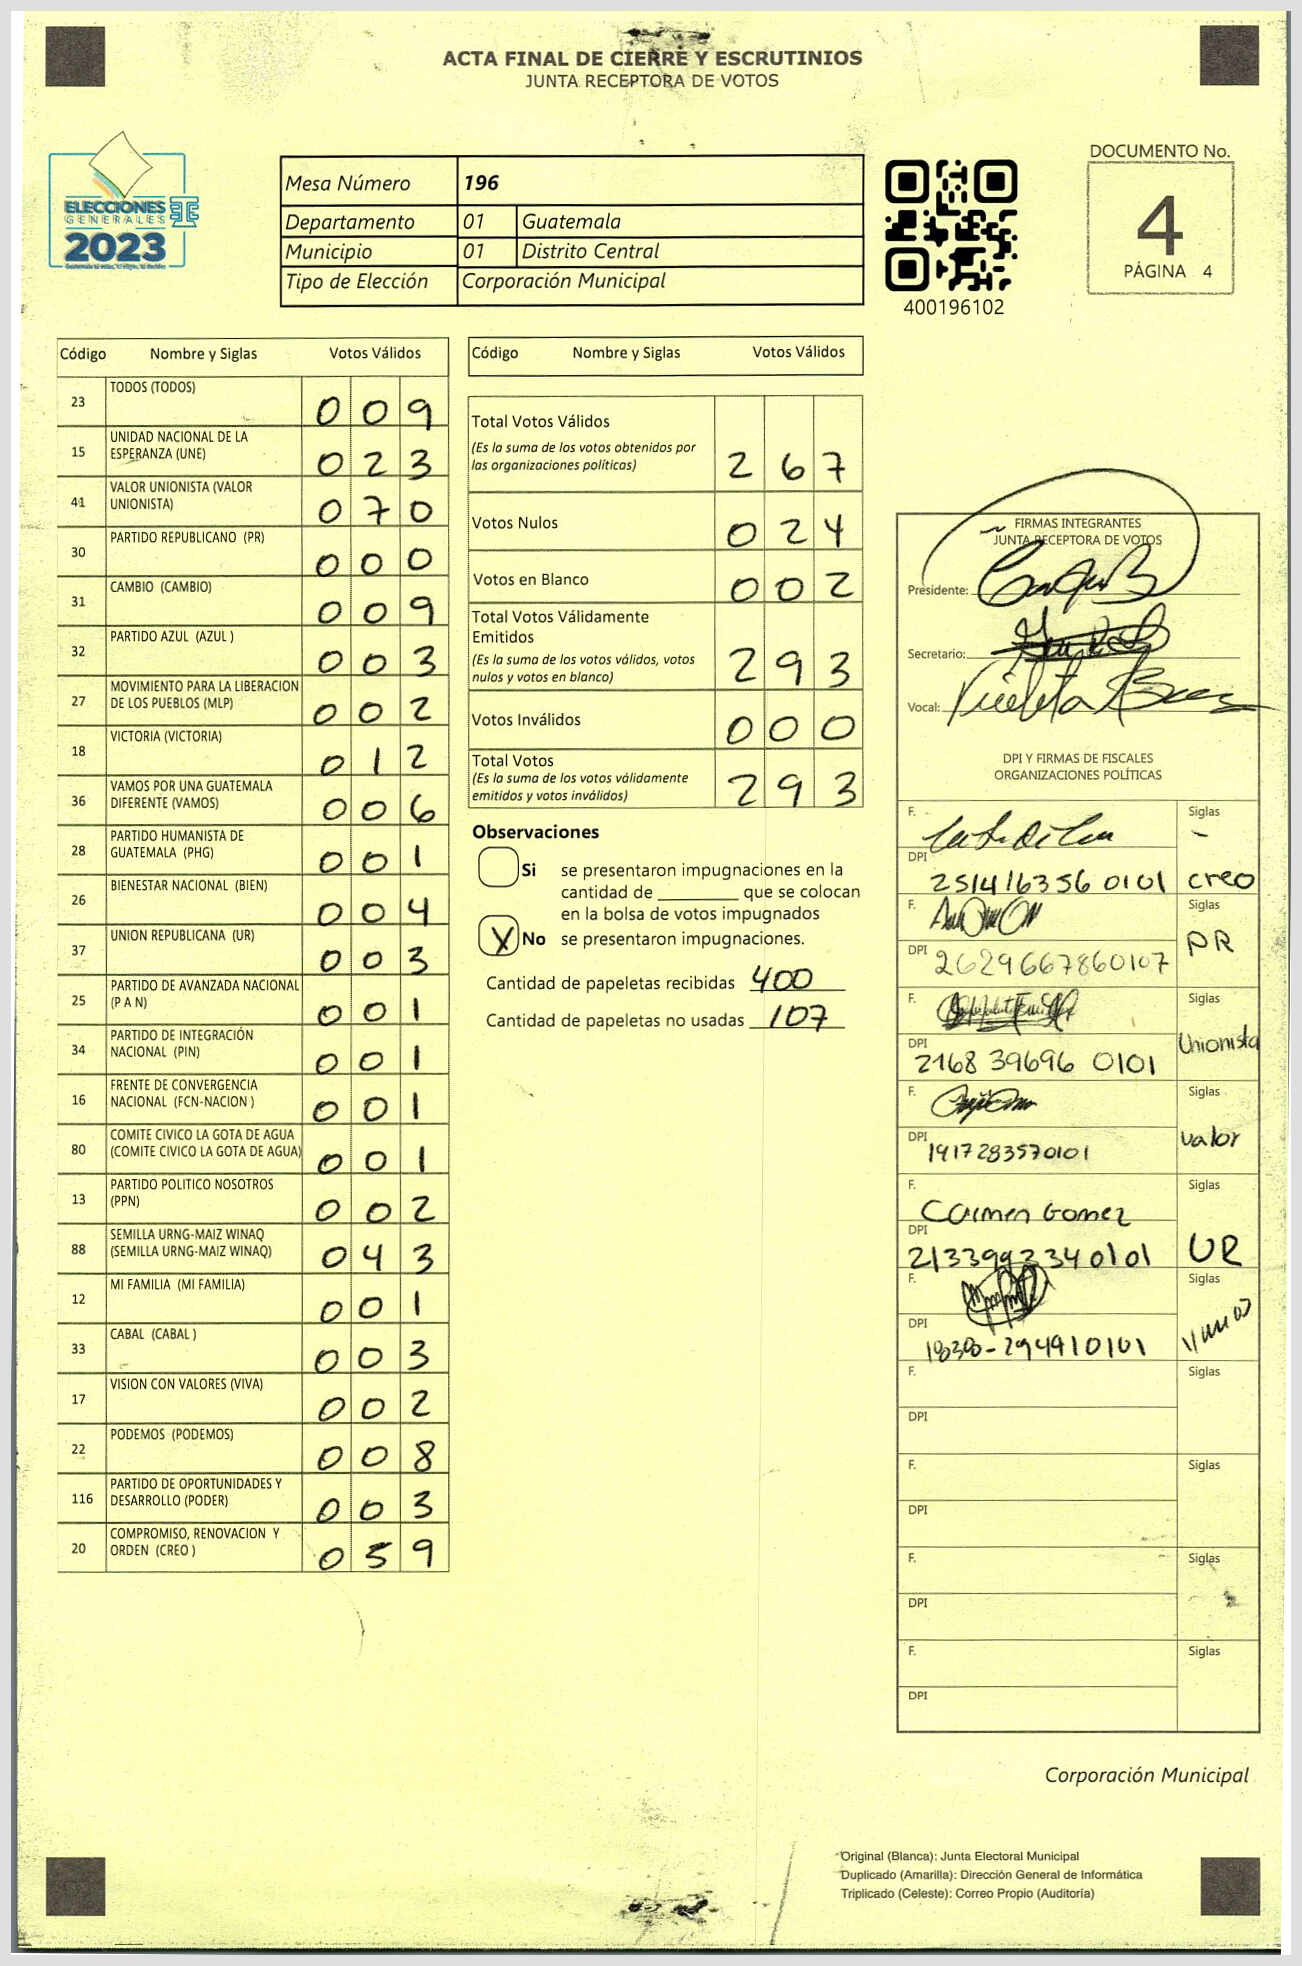 ACTA FINAL DE CIERRE Y ESCRUTINIOS
JUNTA RECEPTORA DE VOTOS
ELECCIONES
GENERALES
2023
Mesa Número 196
Departamento 01 Guatemala
Municipio 01 Distrito Central
Tipo de Elección Corporación Municipal
400196102
DOCUMENTO No.
4
PÁGINA 4
Código Nombre y Siglas Votos Válidos
23 TODOS (TODOS) 0 0 9
15 UNIDAD NACIONAL DE LA
ESPERANZA (UNE) 0 2 3
41 VALOR UNIONISTA (VALOR
UNIONISTA) 0 7 0
30 PARTIDO REPUBLICANO (PR) 0 0 0
31 CAMBIO (CAMBIO) 0 0 9
32 PARTIDO AZUL (AZUL ) 0 0 3
27 MOVIMIENTO PARA LA LIBERACION
DE LOS PUEBLOS (MLP) 0 0 2
18 VICTORIA (VICTORIA) 0 1 2
36 VAMOS POR UNA GUATEMALA
DIFERENTE (VAMOS) 0 0 6
28 PARTIDO HUMANISTA DE
GUATEMALA (PHG) 0 0 1
26 BIENESTAR NACIONAL (BIEN) 0 0 4
37 UNION REPUBLICANA (UR) 0 0 3
25 PARTIDO DE AVANZADA NACIONAL
(P A N) 0 0 1
34 PARTIDO DE INTEGRACIÓN
NACIONAL (PIN) 0 0 1
16 FRENTE DE CONVERGENCIA
NACIONAL (FCN-NACION ) 0 0 1
80 COMITE CIVICO LA GOTA DE AGUA
(COMITE CIVICO LA GOTA DE AGUA) 0 0 1
13 PARTIDO POLITICO NOSOTROS
(PPN) 0 0 2
88 SEMILLA URNG-MAIZ WINAQ
(SEMILLA URNG-MAIZ WINAQ) 0 4 3
12 MI FAMILIA (MI FAMILIA) 0 0 1
33 CABAL (CABAL ) 0 0 3
17 VISION CON VALORES (VIVA) 0 0 2
22 PODEMOS (PODEMOS) 0 0 8
116 PARTIDO DE OPORTUNIDADES Y
DESARROLLO (PODER) 0 0 3
20 COMPROMISO, RENOVACION Y
ORDEN (CREO ) 0 5 9
Código Nombre y Siglas Votos Válidos
Total Votos Válidos
(Es la suma de los votos obtenidos por
las organizaciones políticas) 2 6 7
Votos Nulos 0 2 4
Votos en Blanco 0 0 2
Total Votos Válidamente
Emitidos
(Es la suma de los votos válidos, votos
nulos y votos en blanco) 2 9 3
Votos Inválidos 0 0 0
Total Votos
(Es la suma de los votos válidamente
emitidos y votos inválidos) 2 9 3
Observaciones
Si se presentaron impugnaciones en la
cantidad de ________ que se colocan
en la bolsa de votos impugnados
X No se presentaron impugnaciones.
Cantidad de papeletas recibidas 400
Cantidad de papeletas no usadas 107
FIRMAS INTEGRANTES
JUNTA RECEPTORA DE VOTOS
Presidente:
Secretario:
Vocal:
DPI Y FIRMAS DE FISCALES
ORGANIZACIONES POLÍTICAS
F. Siglas
DPI 2514163560101 creo
F. Siglas
DPI 2629667860107 PR
F. Siglas
DPI 2168 39696 0101 Unionista
F. Siglas
DPI 1917283570101 valor
F. Carmen Gomez Siglas
DPI 2133992340101 UR
F. Siglas
DPI
F. Siglas
DPI
F. Siglas
DPI
F. Siglas
DPI
F. Siglas
DPI
Corporación Municipal
Original (Blanca): Junta Electoral Municipal
Duplicado (Amarilla): Dirección General de Informática
Triplicado (Celeste): Correo Propio (Auditoría)